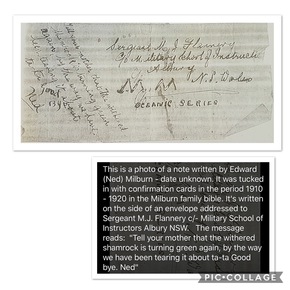 Sergeant M. J. Flannery
C/o Military School of Instructi
Albury
N. S. Wales
OCEANIC SERIES
Ned
This is a photo of a note written by Edward
(Ned) Milburn - date unknown. It was tucked
in with confirmation cards in the period 1910
- 1920 in the Milburn family bible. It's written
on the side of an envelope addressed to
Sergeant M.J. Flannery c/- Military School of
Instructors Albury NSW. The message
reads: "Tell your mother that the withered
shamrock is turning green again, by the way
we have been tearing it about ta-ta Good
bye. Ned"
PIC•COLLAGE